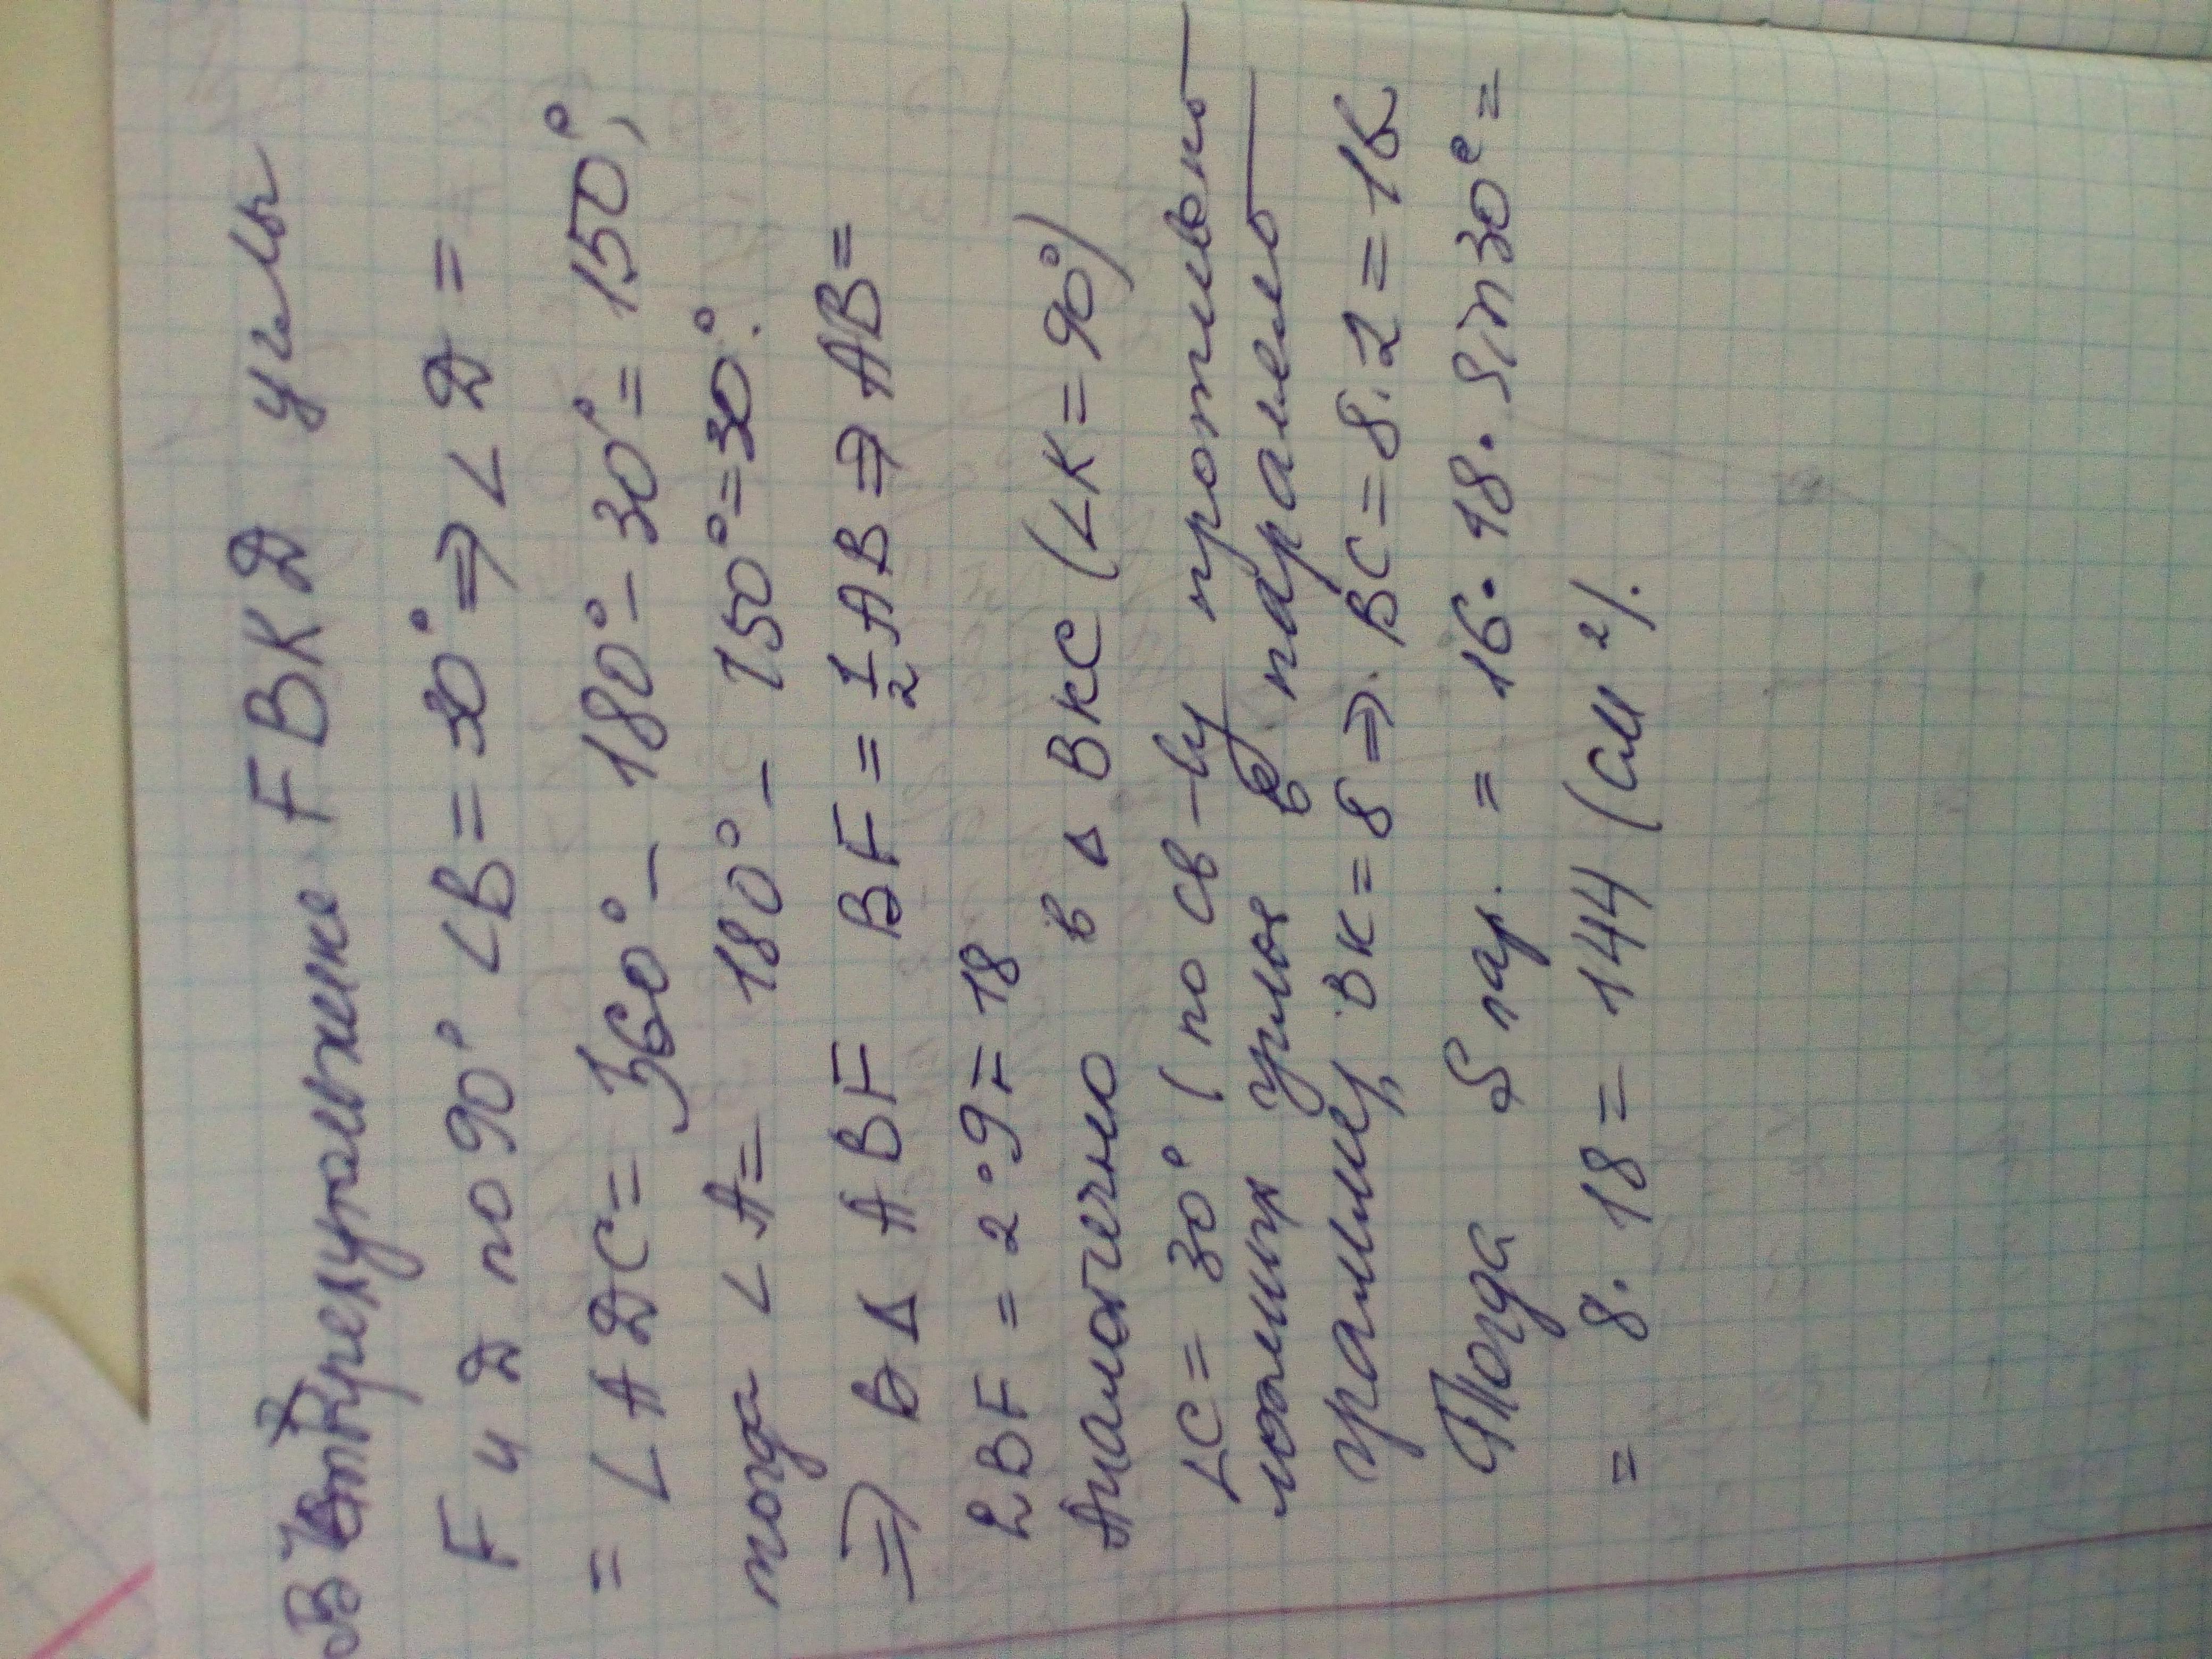 В четырехугольнике FBKД углы
F и Д по 90° ∠B = 30° ⇒ ∠Д =
= ∠АДС = 360° - 180° - 30° = 150°,
тогда ∠А = 180° - 150° = 30°.
⇒ в Δ ABF BF = 1/2 AB ⇒ AB =
2BF = 2·9 = 18
Аналогично в Δ ВКС (∠К = 90°)
∠С = 30° (по св-ву противопо
ложных углов в параллело
грамме), ВК = 8 ⇒ ВС = 8·2 = 16
Тогда S пар. = 16·18·sin30° =
= 8·18 = 144 (см²).